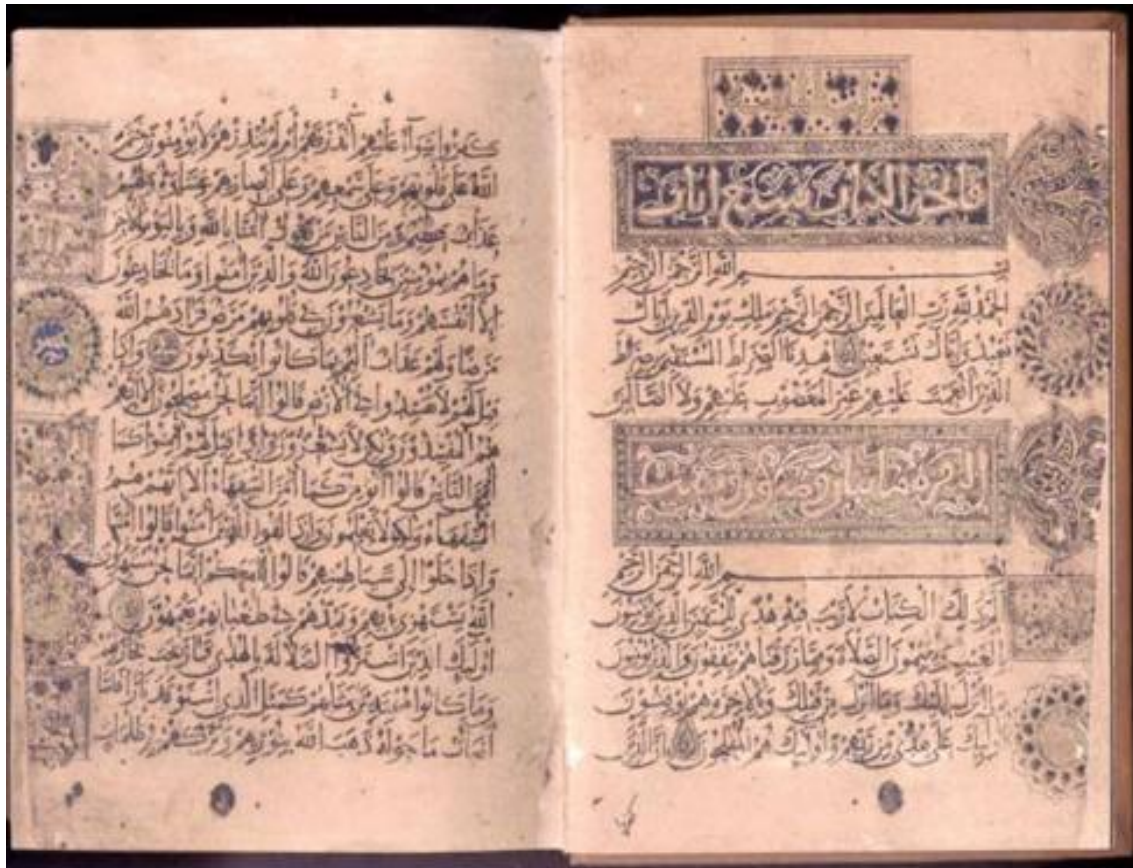 فاتحة الكتاب سبع ايات
بسم الله الرحمن الرحيم
الحمد لله رب العالمين الرحمن الرحيم ملك يوم الدين اياك
نعبد واياك نستعين اهدنا الصراط المستقيم صراط
الذين انعمت عليهم غير المغضوب عليهم ولا الضالين
بسم الله الرحمن الرحيم
الم ذلك الكتاب لا ريب فيه هدى للمتقين الذين يؤمنون
بالغيب ويقيمون الصلاة ومما رزقناهم ينفقون والذين يؤمنون
بما انزل اليك وما انزل من قبلك وبالاخرة هم يوقنون
اولئك على هدى من ربهم واولئك هم المفلحون ان الذين
كفروا سواء عليهم أأنذرتهم أم لم تنذرهم لا يؤمنون ختم
الله على قلوبهم وعلى سمعهم وعلى أبصارهم غشاوة ولهم
عذاب عظيم ومن الناس من يقول آمنا بالله وباليوم الآخر
وما هم بمؤمنين يخادعون الله والذين آمنوا وما يخادعون
إلا أنفسهم وما يشعرون في قلوبهم مرض فزادهم الله
مرضا ولهم عذاب أليم بما كانوا يكذبون وإذا
قيل لهم لا تفسدوا في الأرض قالوا إنما نحن مصلحون ألا إنهم
هم المفسدون ولكن لا يشعرون وإذا قيل لهم آمنوا كما
آمن الناس قالوا أنؤمن كما آمن السفهاء ألا إنهم هم
السفهاء ولكن لا يعلمون وإذا لقوا الذين آمنوا قالوا آمنا
وإذا خلوا إلى شياطينهم قالوا إنا معكم إنما نحن مستهزئون
الله يستهزئ بهم ويمدهم في طغيانهم يعمهون
أولئك الذين اشتروا الضلالة بالهدى فما ربحت تجارتهم
وما كانوا مهتدين مثلهم كمثل الذي استوقد نارا فلما
أضاءت ما حوله ذهب الله بنورهم وتركهم في ظلمات